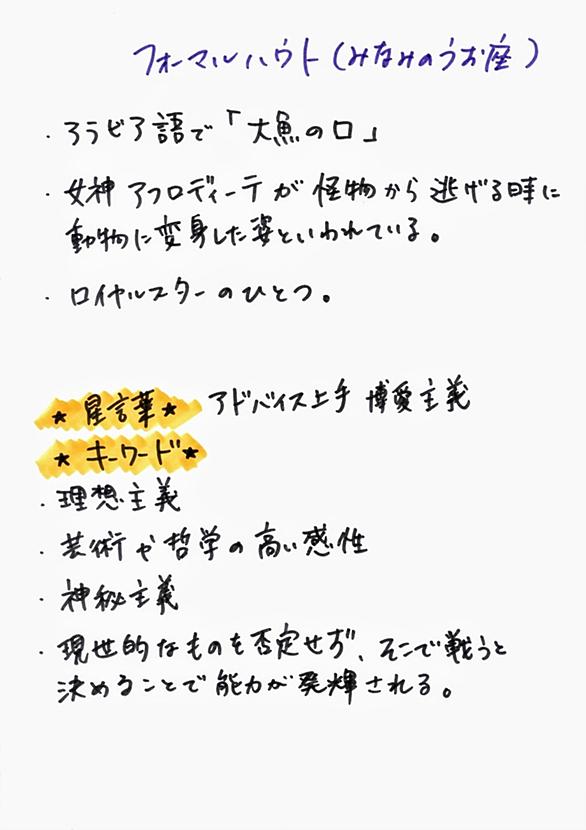 フォーマルハウト(みなみのうお座)
・アラビア語で「大魚の口」
・女神アフロディーテが怪物から逃げる時に
動物に変身した姿といわれている。
・ロイヤルスターのひとつ。
★星言葉★ アドバイス上手 博愛主義
★キーワード★
・理想主義
・芸術や哲学の高い感性
・神秘主義
・現世的なものを否定せず、そこで戦うと
決めることで能力が発揮される。